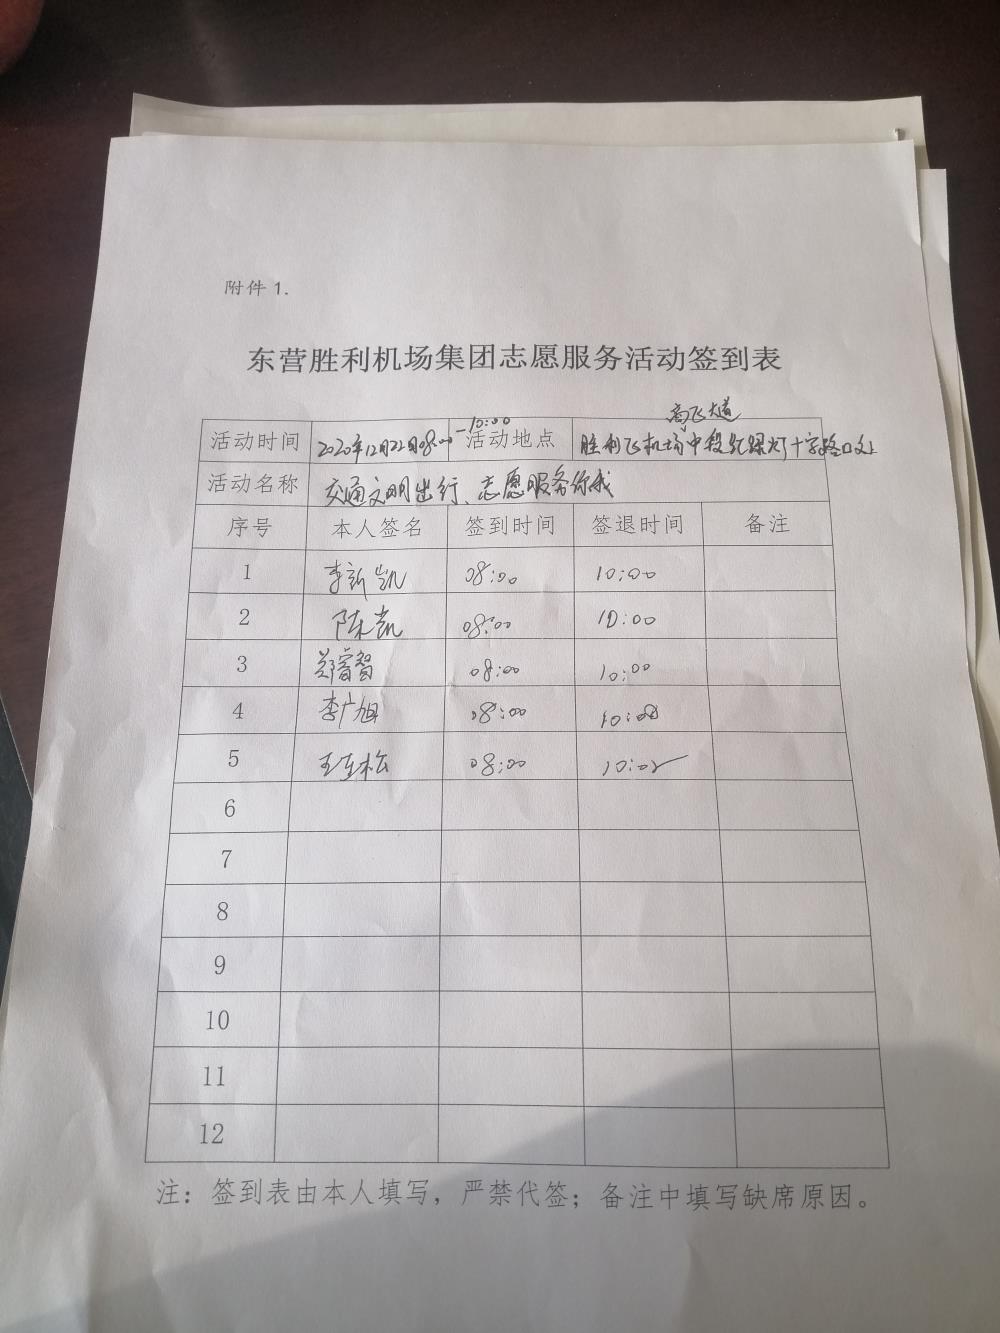 附件 1.
东营胜利机场集团志愿服务活动签到表
活动时间 2020年12月22日08:00-10:00 活动地点 胜利飞机场中段红绿灯十字路口交 高飞大道
活动名称 交通文明出行、志愿服务你我
序号 本人签名 签到时间 签退时间 备注
1 李新凯 08:00 10:00
2 陈凯 08:00 10:00
3 郑睿智 08:00 10:00
4 李广旭 08:00 10:00
5 08:00
6
7
8
9
10
11
12
注：签到表由本人填写，严禁代签；备注中填写缺席原因。